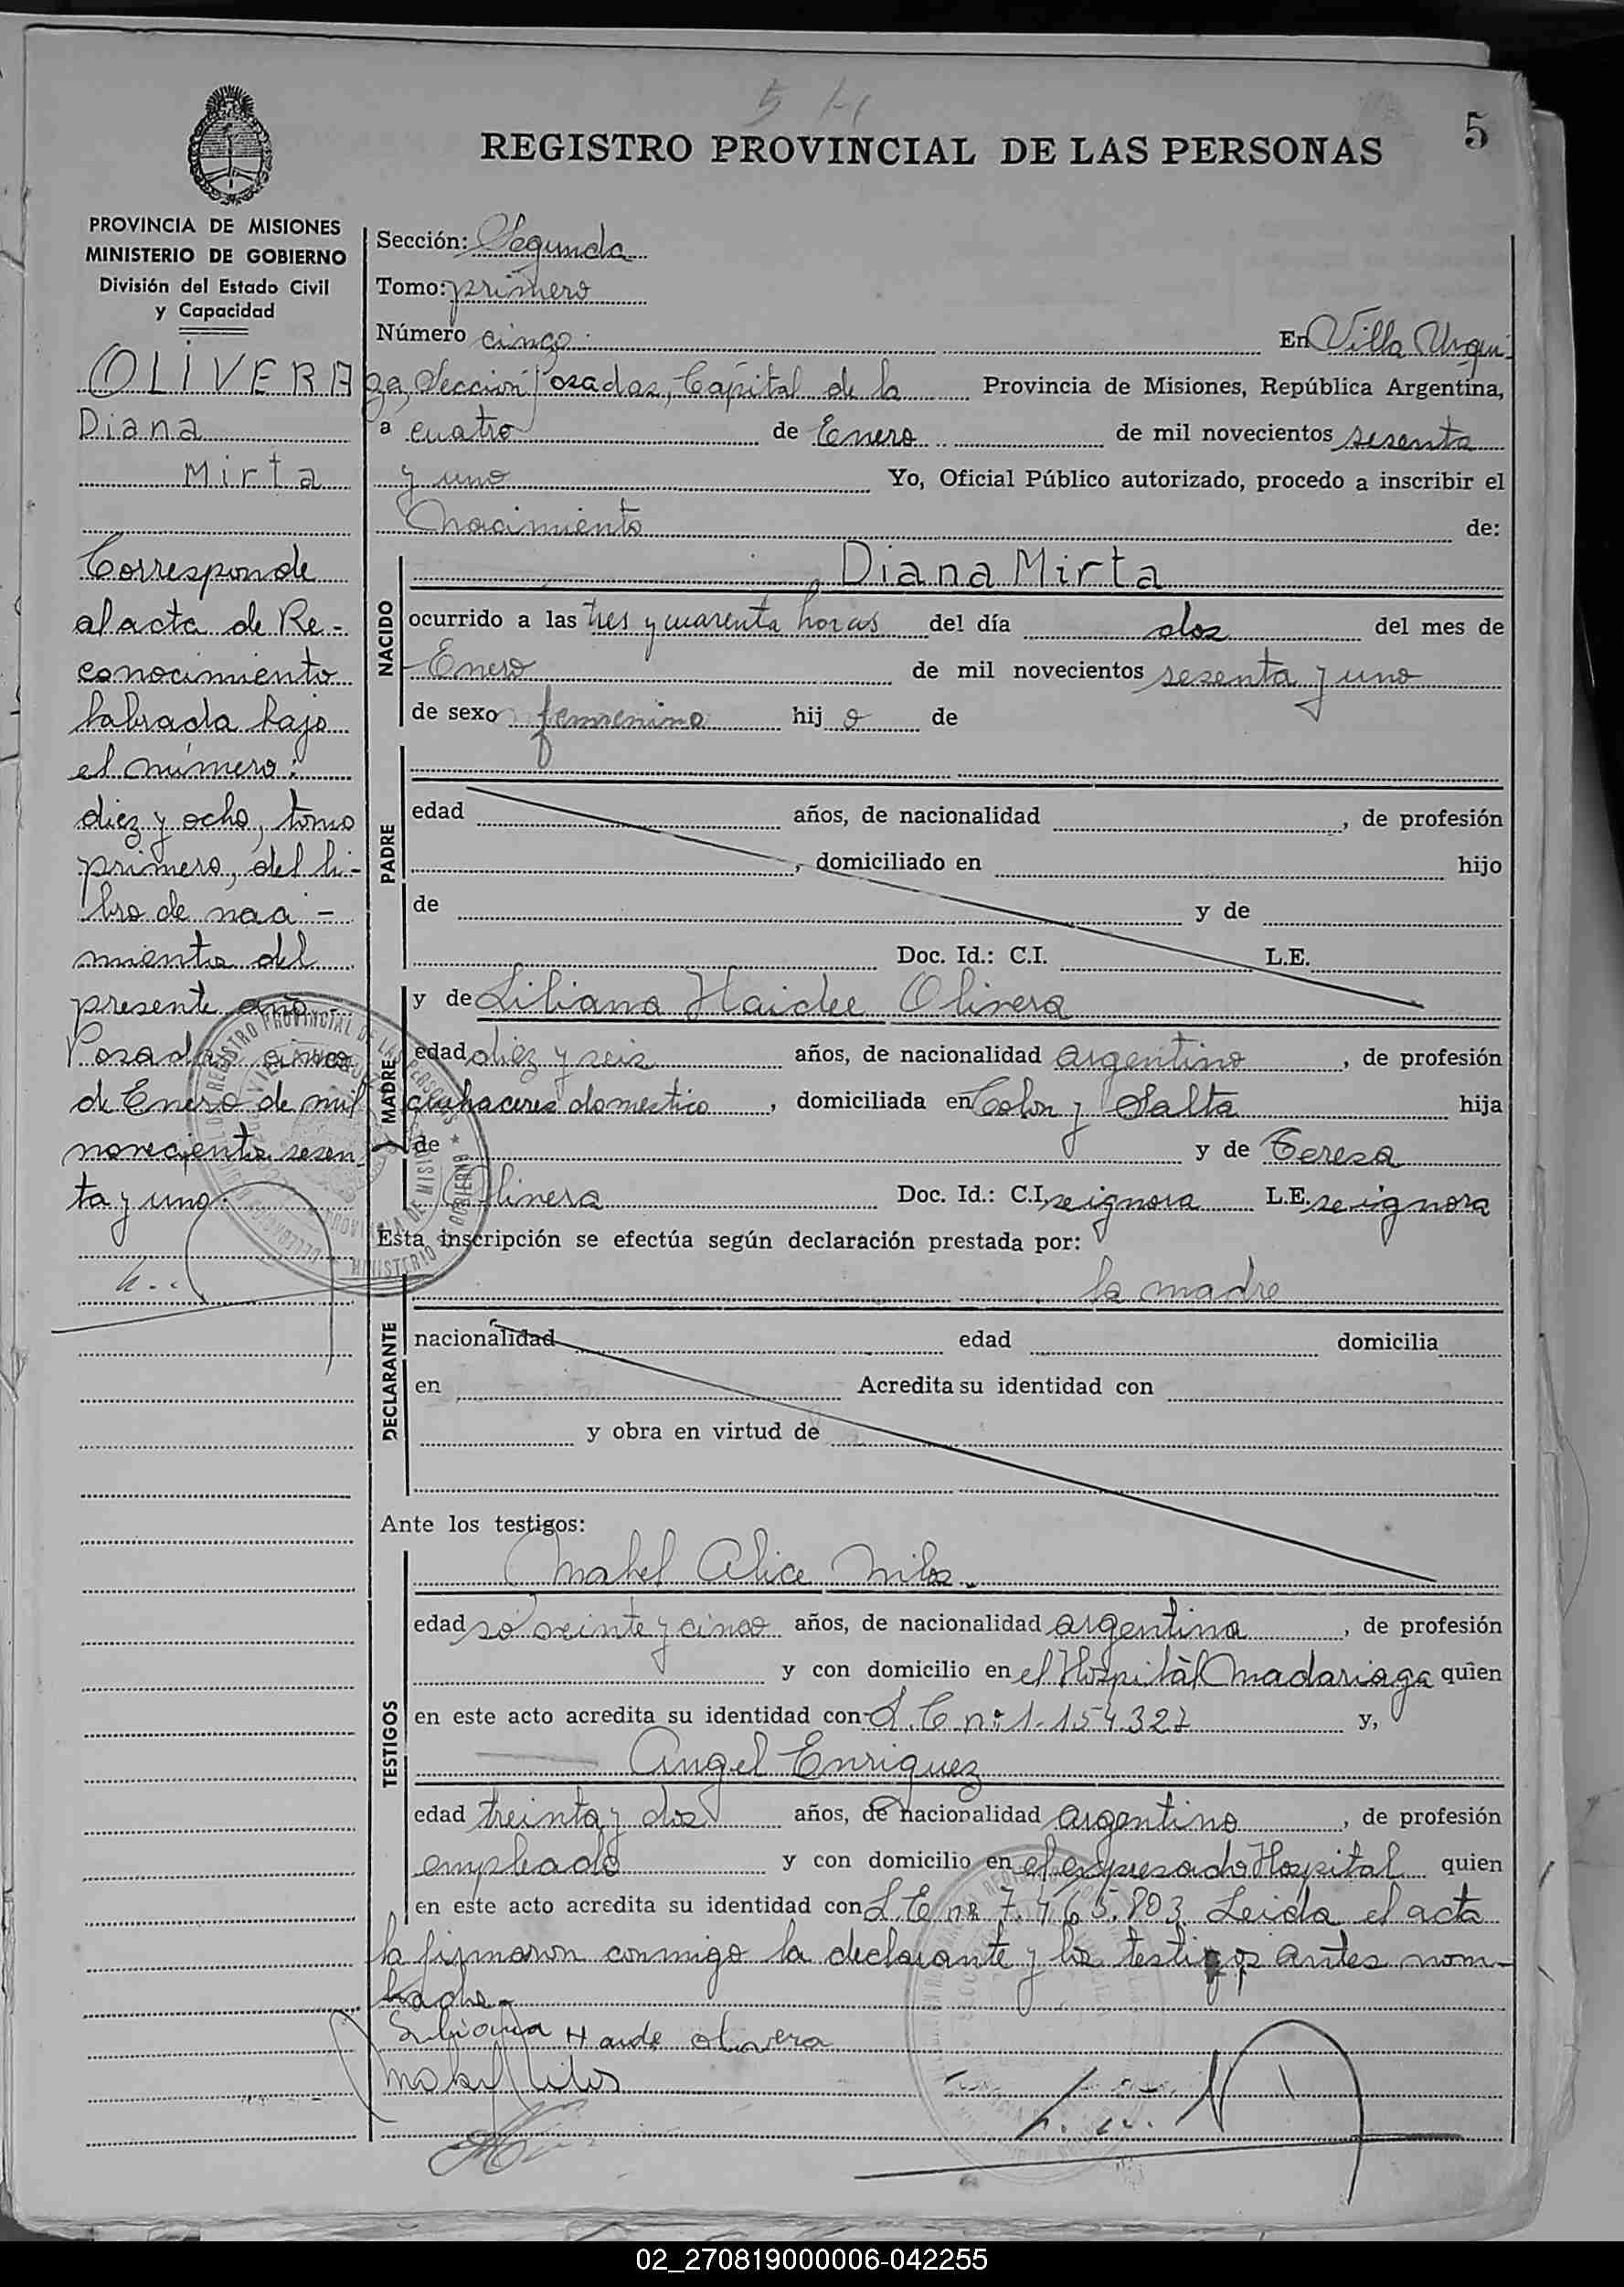 5
REGISTRO PROVINCIAL DE LAS PERSONAS
PROVINCIA DE MISIONES
MINISTERIO DE GOBIERNO
División del Estado Civil
y Capacidad
OLIVERA
Diana
Mirta
Corresponde
al acta de Re-
conocimiento
labrada bajo
el número:
diez y ocho, tomo
primero, del li-
bro de naci-
miento del
presente año
Posadas cinco
de Enero de mil
novecientos sesen-
ta y uno.
Sección: Segunda
Tomo: primero
Número cinco: En Villa Urqui-
za, Sección Posadas, Capital de la Provincia de Misiones, República Argentina,
a cuatro de Enero de mil novecientos sesenta
y uno Yo, Oficial Público autorizado, procedo a inscribir el
Nacimiento de:
NACIDO
Diana Mirta
ocurrido a las tres y cuarenta horas del día dos del mes de
Enero de mil novecientos sesenta y uno
de sexo femenino hij o de
PADRE
edad años, de nacionalidad , de profesión
, domiciliado en hijo
de y de
Doc. Id.: C.I. L.E.
MADRE
y de Liliana Haidee Olivera
edad diez y seis años, de nacionalidad argentino , de profesión
quehaceres domestico , domiciliada en Colon y Salta hija
de y de Teresa
Olivera Doc. Id.: C.I. se ignora L.E. se ignora
Esta inscripción se efectúa según declaración prestada por:
la madre
DECLARANTE
nacionalidad edad domicilia
en Acredita su identidad con
y obra en virtud de
Ante los testigos:
TESTIGOS
Mabel Alice Milos
edad veinte y cinco años, de nacionalidad argentina , de profesión
y con domicilio en el Hospital Madariaga quien
en este acto acredita su identidad con L.C. nº 1.154.327 y,
Angel Enriquez
edad treinta y dos años, de nacionalidad argentino , de profesión
empleado y con domicilio en el expresado Hospital quien
en este acto acredita su identidad con L.E. nº 7.465.803 Leida el acta
la firmaron conmigo la declarante y los testigos antes nom-
brados.
Liliana Haide olivera
Mabel Milos
02_270819000006-042255